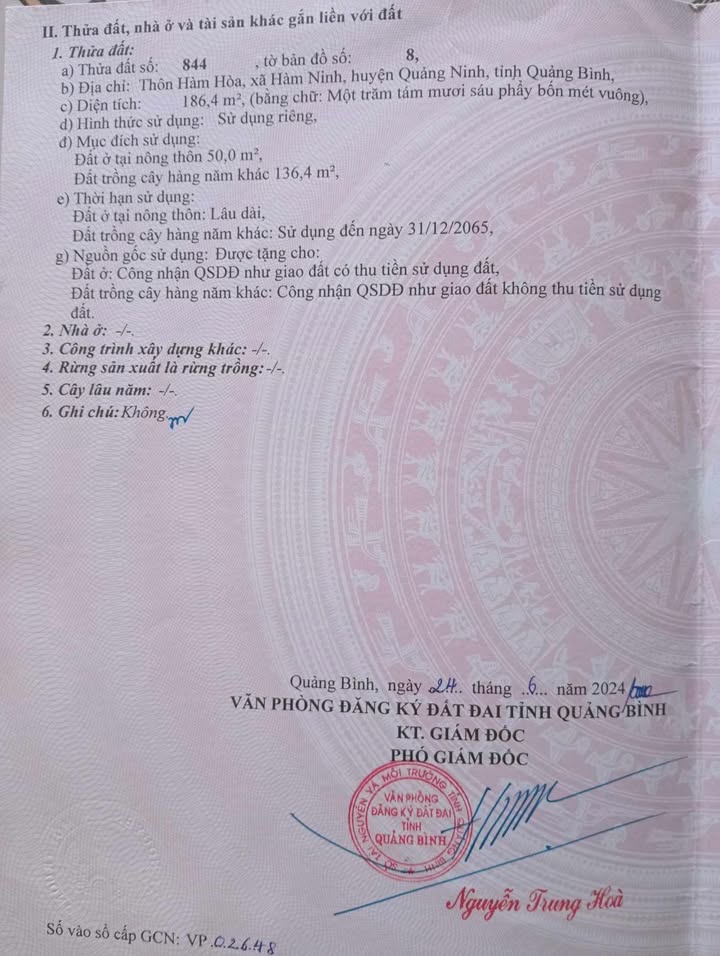 II. Thửa đất, nhà ở và tài sản khác gắn liền với đất
1. Thửa đất:
a) Thửa đất số: 844 , tờ bản đồ số: 8,
b) Địa chỉ: Thôn Hàm Hòa, xã Hàm Ninh, huyện Quảng Ninh, tỉnh Quảng Bình,
c) Diện tích: 186,4 m², (bằng chữ: Một trăm tám mươi sáu phẩy bốn mét vuông),
d) Hình thức sử dụng: Sử dụng riêng,
đ) Mục đích sử dụng:
Đất ở tại nông thôn 50,0 m²,
Đất trồng cây hàng năm khác 136,4 m²,
e) Thời hạn sử dụng:
Đất ở tại nông thôn: Lâu dài,
Đất trồng cây hàng năm khác: Sử dụng đến ngày 31/12/2065,
g) Nguồn gốc sử dụng: Được tặng cho:
Đất ở: Công nhận QSDĐ như giao đất có thu tiền sử dụng đất,
Đất trồng cây hàng năm khác: Công nhận QSDĐ như giao đất không thu tiền sử dụng
đất.
2. Nhà ở: -/-.
3. Công trình xây dựng khác: -/-.
4. Rừng sản xuất là rừng trồng: -/-.
5. Cây lâu năm: -/-.
6. Ghi chú: Không.
Quảng Bình, ngày 24.. tháng ..6... năm 2024
VĂN PHÒNG ĐĂNG KÝ ĐẤT ĐAI TỈNH QUẢNG BÌNH
KT. GIÁM ĐỐC
PHÓ GIÁM ĐỐC
SỞ TÀI NGUYÊN VÀ MÔI TRƯỜNG TỈNH QUẢNG BÌNH
VĂN PHÒNG
ĐĂNG KÝ ĐẤT ĐAI
TỈNH
QUẢNG BÌNH
Nguyễn Trung Hoà
Số vào sổ cấp GCN: VP.02648